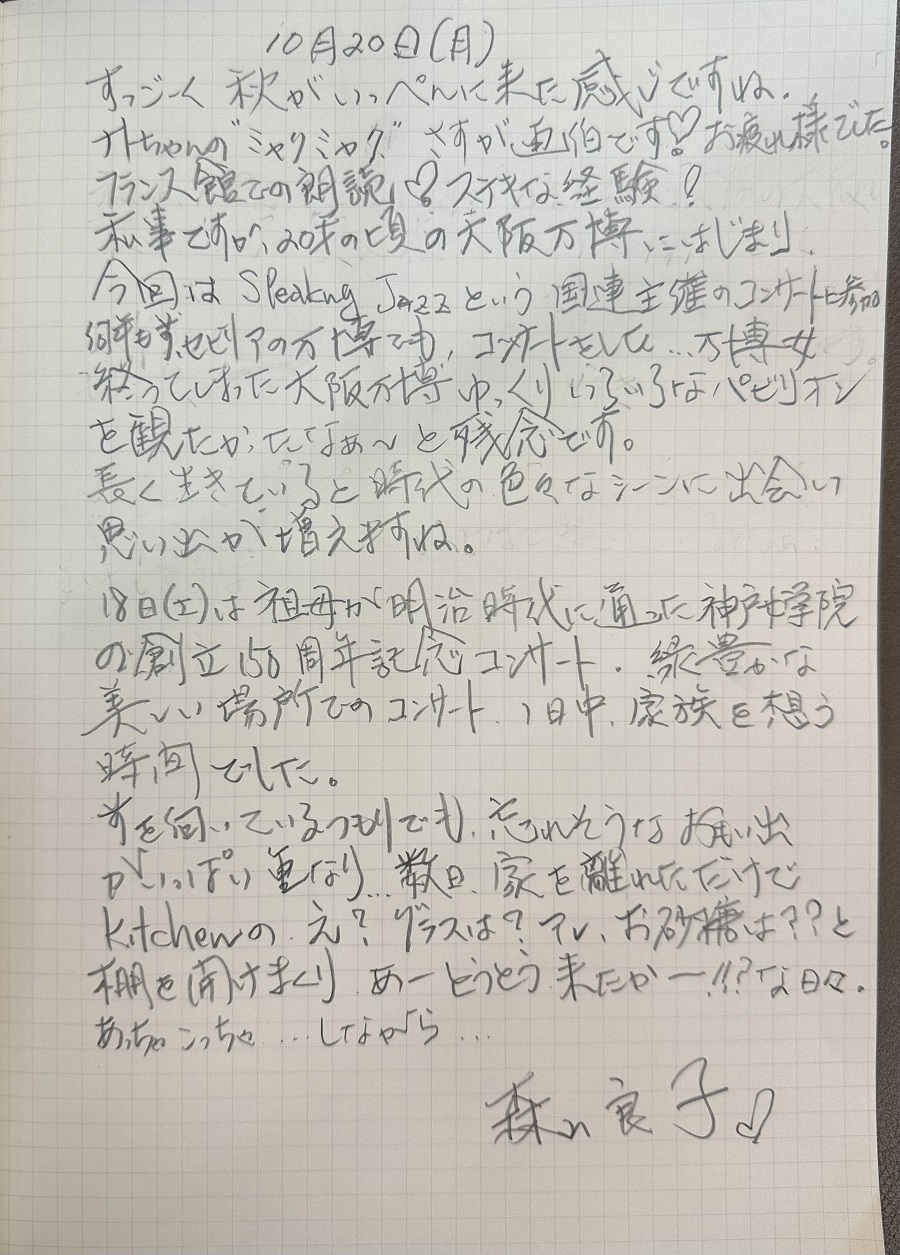 10月20日(月)
すっごーく 秋がいっぺんに来た感じですね.
ナトちゃんの"ミャクミャク" さすが画伯です♡! お疲れ様でした。
フランス館での朗読♡ ステキな経験!
私事ですが、20才の頃の大阪万博にはじまり、
今回は Speakng JAZZ という 国連主催のコンサートに参加
何年もまえ、セビリアの万博でも、コンサートをした...万博女
終ってしまった大阪万博ゆっくりいろいろなパビリオン
を観たかったなぁ〜と残念です。
長く生きていると時代の色々なシーンに出会い
思い出が増えますね。
18日(土)は祖母が明治時代に通った神戸女学院
の創立150周年記念コンサート. 緑豊かな
美しい場所でのコンサート、1日中、家族を想う
時間でした。
を伺っているつもりでも、忘れそうなお思い出
がいっぱい重なり...数日、家を離れただけで
Kitchenの え? グラスは? アレ、お砂糖は??と
棚を開けまくり あーとうとう来たかー!!?な日々.
あっちゃこっちゃ...しながら...
森山良子♡